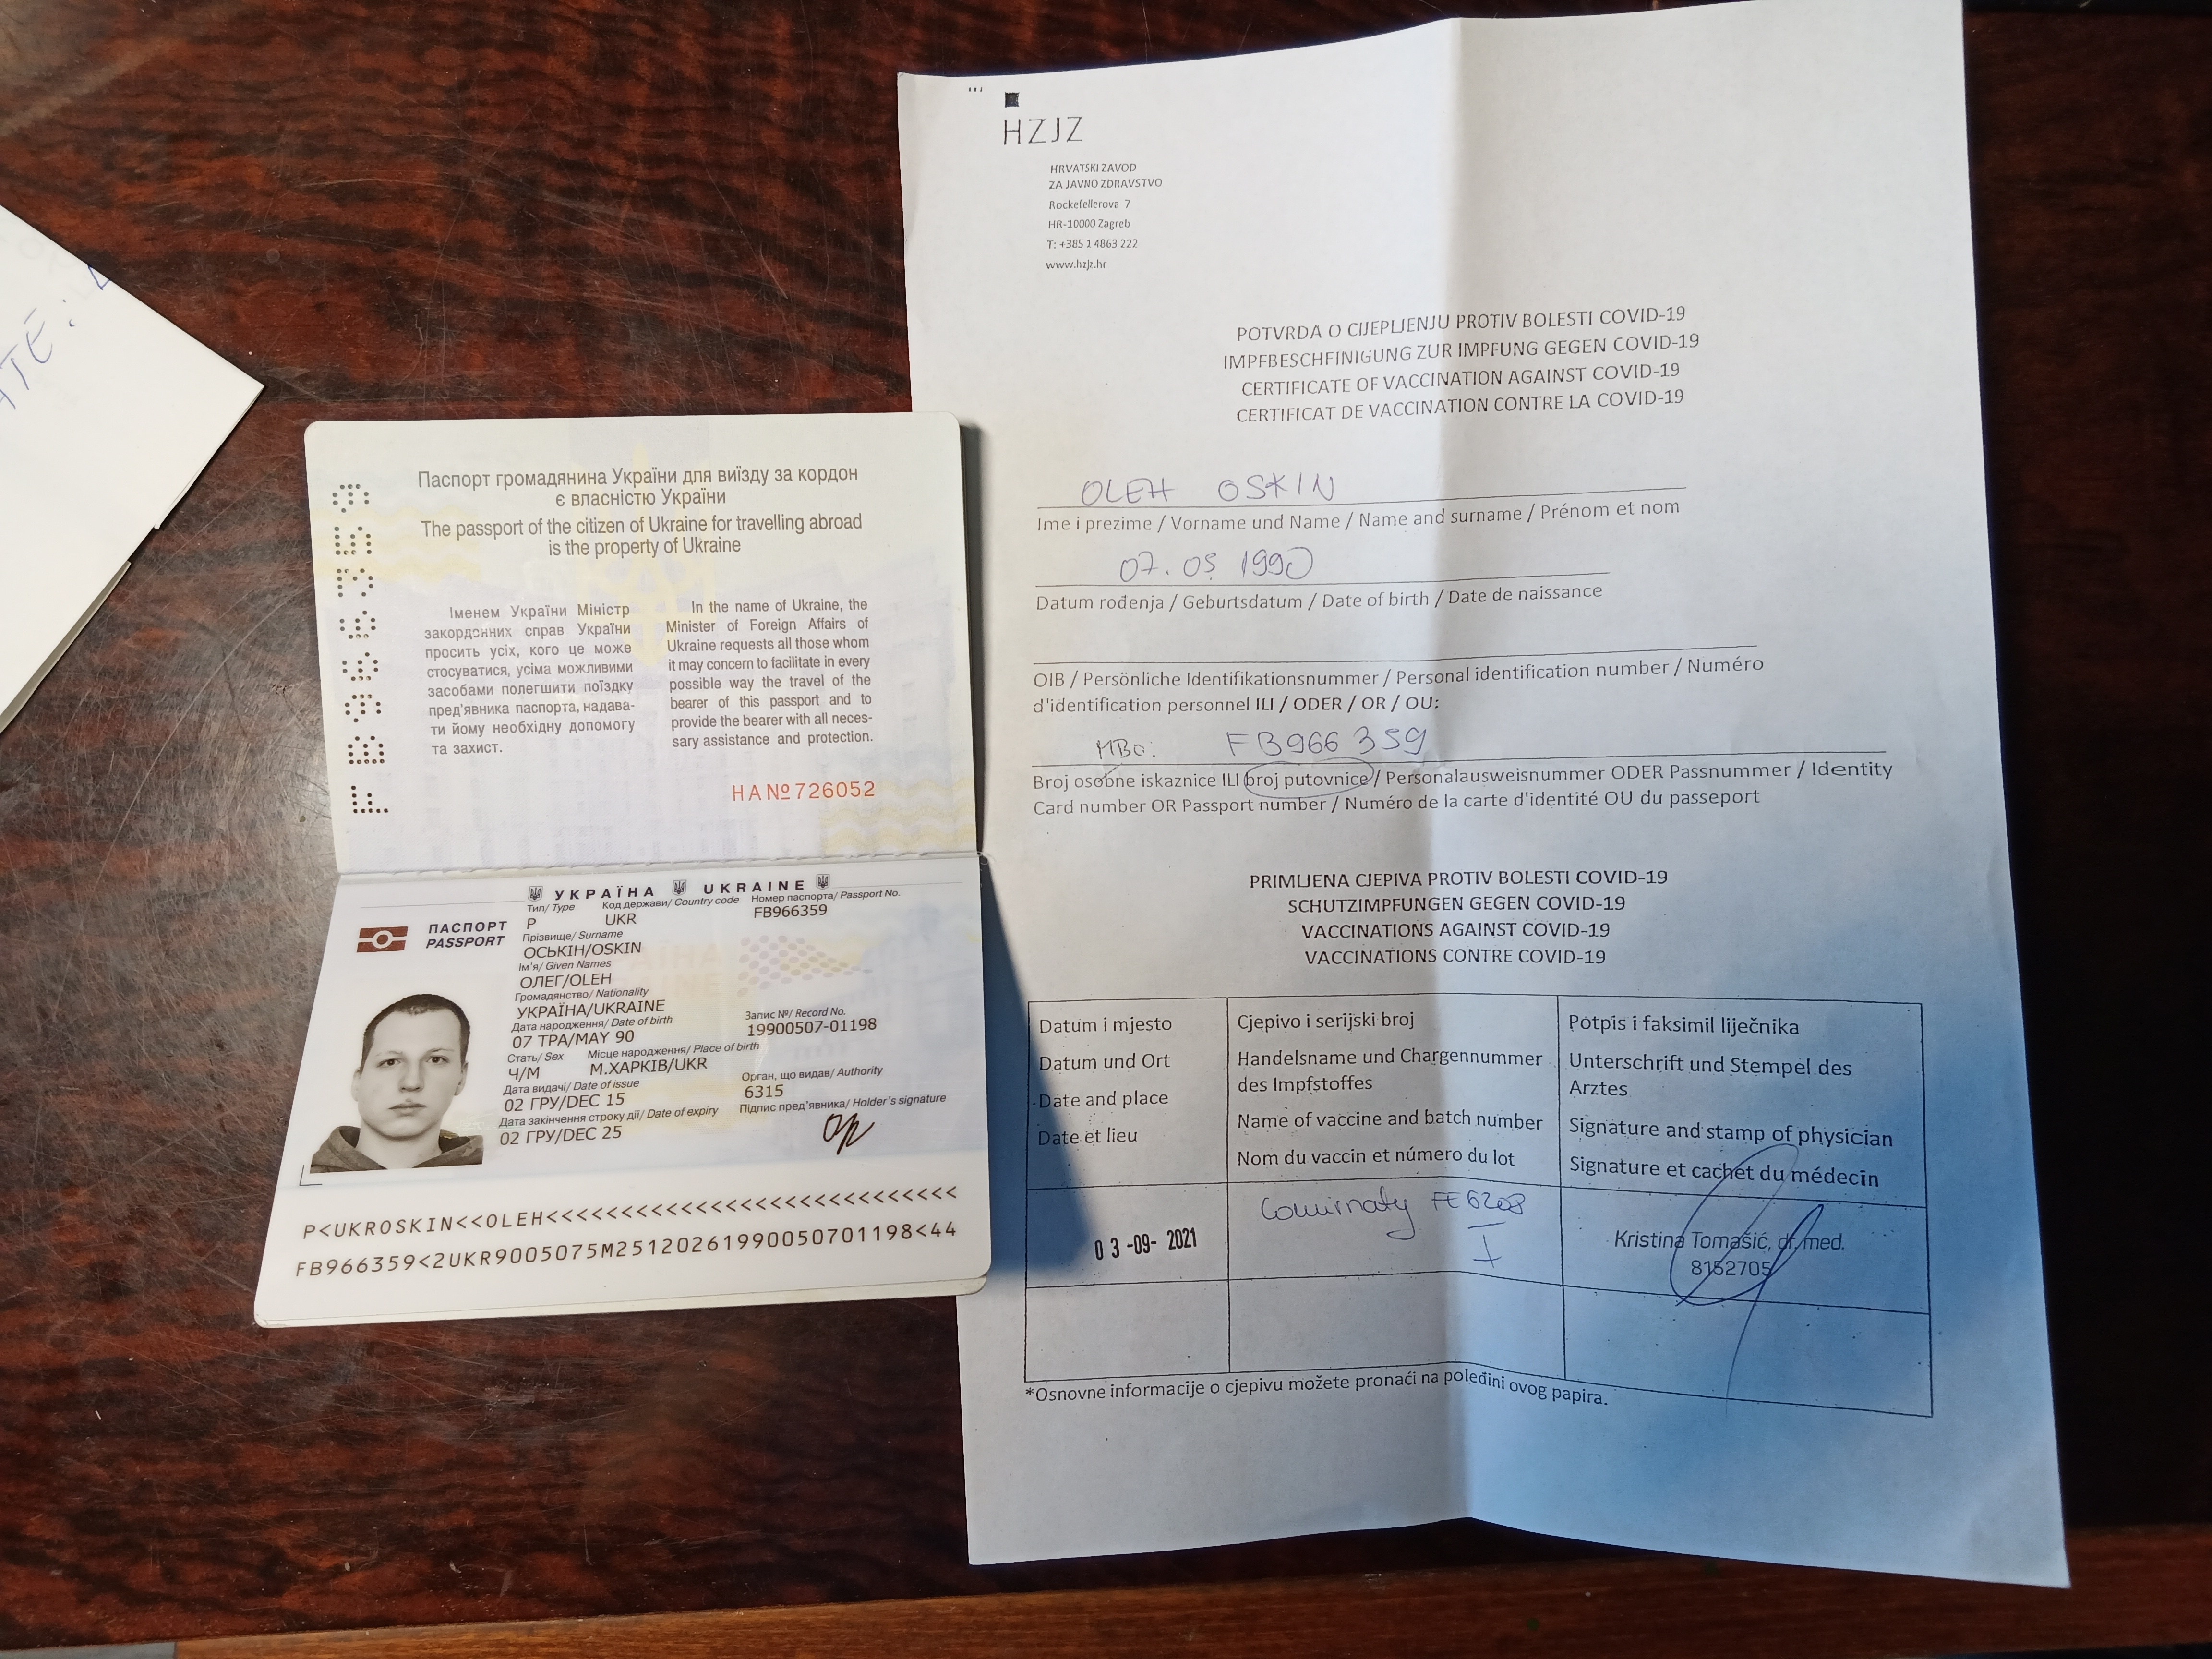 ATE:
Паспорт громадянина України для виїзду за кордон
є власністю України
The passport of the citizen of Ukraine for travelling abroad
is the property of Ukraine
Іменем України Міністр
закордонних справ України
просить усіх, кого це може
стосуватися, усіма можливими
засобами полегшити поїздку
пред'явника паспорта, надава-
ти йому необхідну допомогу
та захист.
In the name of Ukraine, the
Minister of Foreign Affairs of
Ukraine requests all those whom
it may concern to facilitate in every
possible way the travel of the
bearer of this passport and to
provide the bearer with all neces-
sary assistance and protection.
HA№726052
FB966359
УКРАЇНА UKRAINE
ПАСПОРТ
PASSPORT
Тип/ Type Код держави/ Country code Номер паспорта/ Passport No.
P UKR FB966359
Прізвище/ Surname
ОСЬКІН/OSKIN
Ім'я/ Given Names
ОЛЕГ/OLEH
Громадянство/ Nationality
УКРАЇНА/UKRAINE
Дата народження/ Date of birth Запис №/ Record No.
07 ТРА/MAY 90 19900507-01198
Стать/ Sex Місце народження/ Place of birth
Ч/M М.ХАРКІВ/UKR
Дата видачі/ Date of issue Орган, що видав/ Authority
02 ГРУ/DEC 15 6315
Дата закінчення строку дії/ Date of expiry Підпис пред'явника/ Holder's signature
02 ГРУ/DEC 25
P<UKROSKIN<<OLEH<<<<<<<<<<<<<<<<<<<<<<<<<<<<
FB966359<2UKR9005075M25120261990050701198<44
HZJZ
HRVATSKI ZAVOD
ZA JAVNO ZDRAVSTVO
Rockefellerova 7
HR-10000 Zagreb
T: +385 1 4863 222
www.hzjz.hr
POTVRDA O CIJEPLJENJU PROTIV BOLESTI COVID-19
IMPFBESCHFINIGUNG ZUR IMPFUNG GEGEN COVID-19
CERTIFICATE OF VACCINATION AGAINST COVID-19
CERTIFICAT DE VACCINATION CONTRE LA COVID-19
OLEH OSKIN
Ime i prezime / Vorname und Name / Name and surname / Prénom et nom
07. 05 1990
Datum rođenja / Geburtsdatum / Date of birth / Date de naissance
OIB / Persönliche Identifikationsnummer / Personal identification number / Numéro
d'identification personnel ILI / ODER / OR / OU:
MBO: FB966 359
Broj osobne iskaznice ILI broj putovnice / Personalausweisnummer ODER Passnummer / Identity
Card number OR Passport number / Numéro de la carte d'identité OU du passeport
PRIMLJENA CJEPIVA PROTIV BOLESTI COVID-19
SCHUTZIMPFUNGEN GEGEN COVID-19
VACCINATIONS AGAINST COVID-19
VACCINATIONS CONTRE COVID-19
Datum i mjesto
Datum und Ort
Date and place
Date et lieu
Cjepivo i serijski broj
Handelsname und Chargennummer
des Impfstoffes
Name of vaccine and batch number
Nom du vaccin et número du lot
Potpis i faksimil liječnika
Unterschrift und Stempel des
Arztes
Signature and stamp of physician
Signature et cachet du médecin
03-09-2021
Comirnaty FE6208
I
Kristina Tomašić, dr.med.
8152705
*Osnovne informacije o cjepivu možete pronaći na poleđini ovog papira.